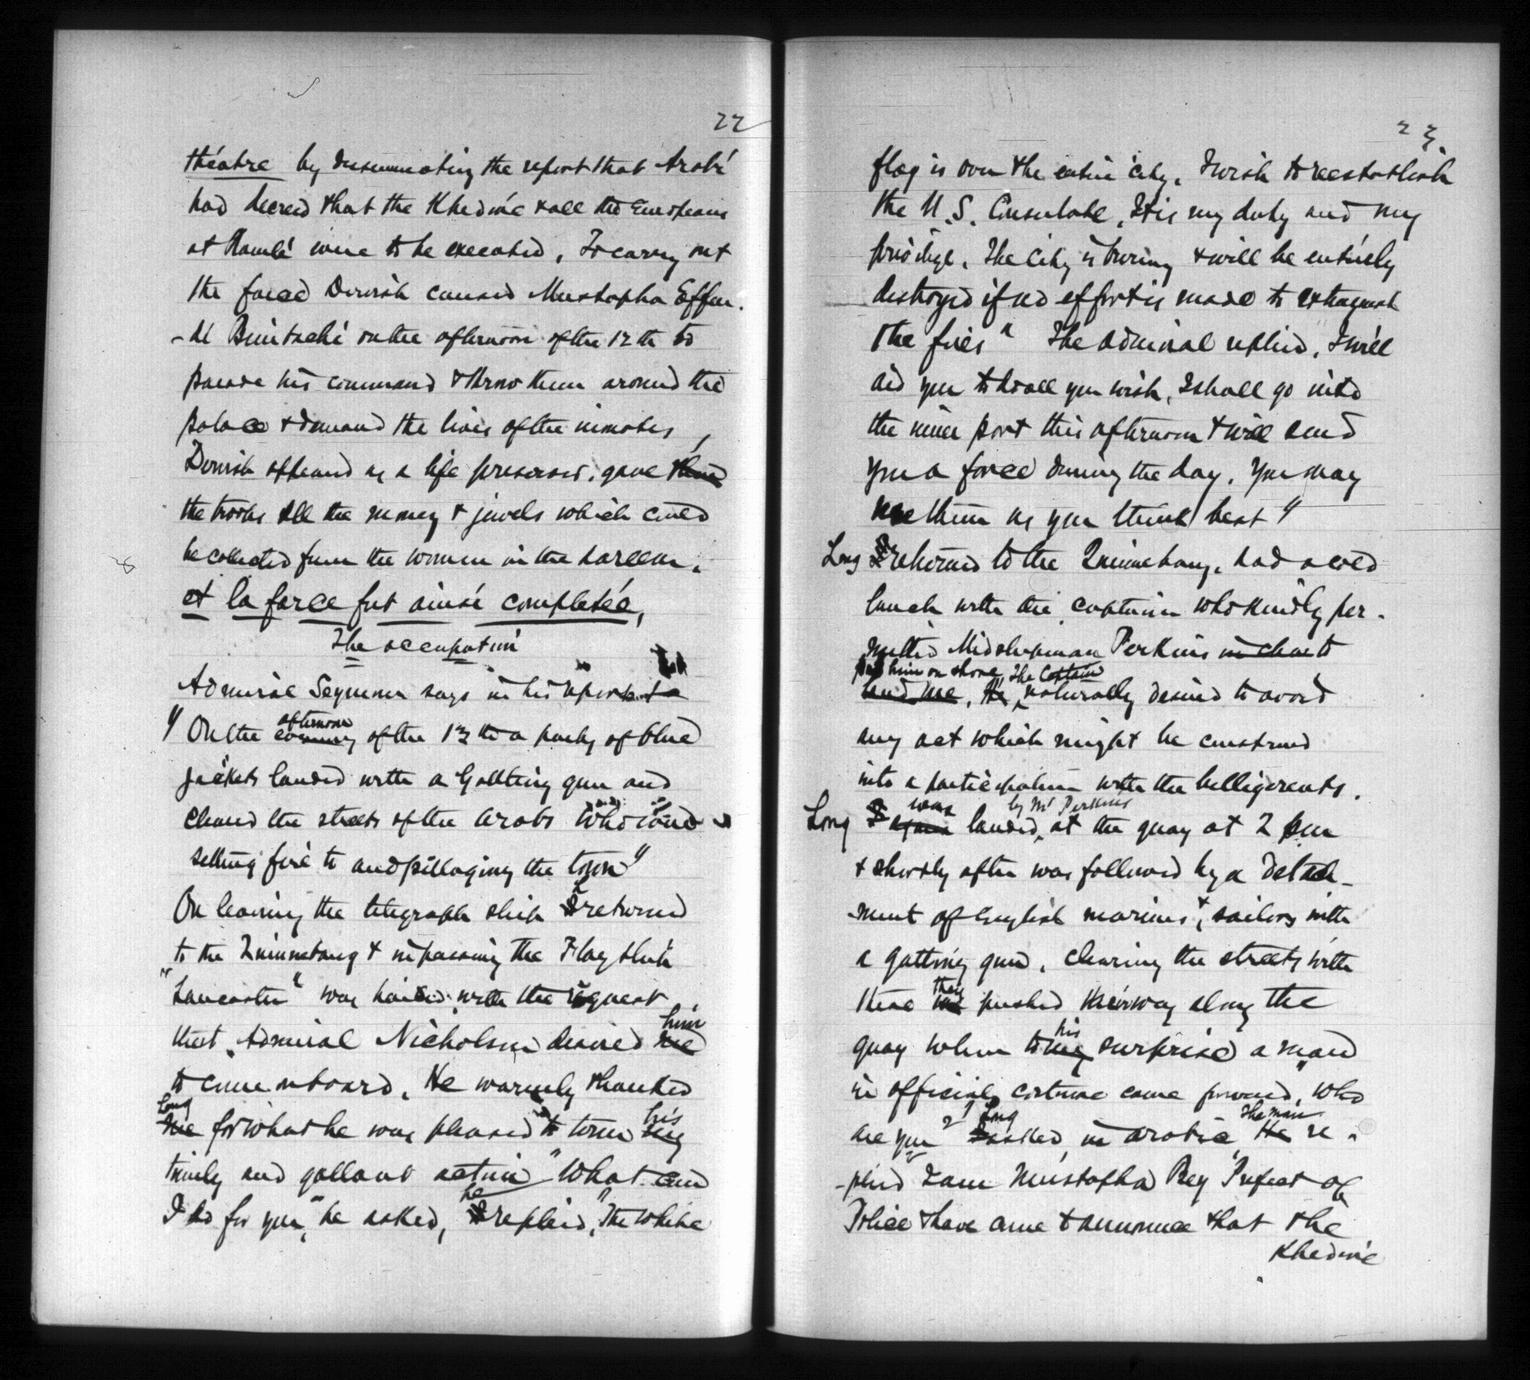 22
théatre by insinuating the report that Arabi
had decreed that the Khedivé & all the Europeans
at Ramlé were to be executed. To carry out
the farce Dervish caused Mustapha Effen.
-di on the afternoon of the 12th to
parade his command & throw them around the
palace & demand the lives of the inmates,
Dervish appeared as a life preserver, gave them
the troops all the money & jewels which could
be collected from the women in the hareem.
et la farce fut ainsi completée,
The occupation
Admiral Seymour says in his report
"On the evening afternoon of the 13th a party of blue
jackets landed with a Gattling gun and
cleared the streets of the arabs who were
setting fire to and pillaging the town"
On leaving the telegraph ship I returned
to the Quinnebaug & in passing the Flag ship
"Lancaster" was hailed with the request
that Admiral Nicholson desired me him
to come on board. He warmly thanked
me Long for what he was pleased to term my his
timely and gallant action "What can
I do for you," he asked, I he replied, "The White
23
flag is over the entire city. I wish to reestablish
the U.S. Consulate. It is my duty and my
privilige. The City is burning & will be entirely
destroyed if no effort is made to extinguish
the fires" The admiral replied, I will
aid you to do all you wish, I shall go into
the inner port this afternoon & will send
you a force during the day. You may
use them as you think best"
Long I returned to the Quinnebaug, had a cold
lunch with the captain who kindly per-
mitted Midshipman Perkins to
land me. put him on shore, He The Captain naturally desired to avoid
any act which might be construed
into a participation with the belligerents.
Long I again was landed by Mr Perkins at the quay at 2 pm
& shortly after was followed by a detach-
-ment of English marines & sailors with
a gatting gun, clearing the streets with
these they pushed their way along the
quay when to my his surprise a man
in official costume came forward, "Who
are you"? I Long asked in arabic He The man re-
-plied "I am Mustapha Bey Prefect of
Police & have come to announce that the
Khedivé